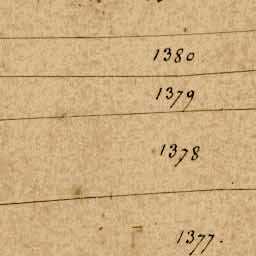 1380
1379
1378
1377.